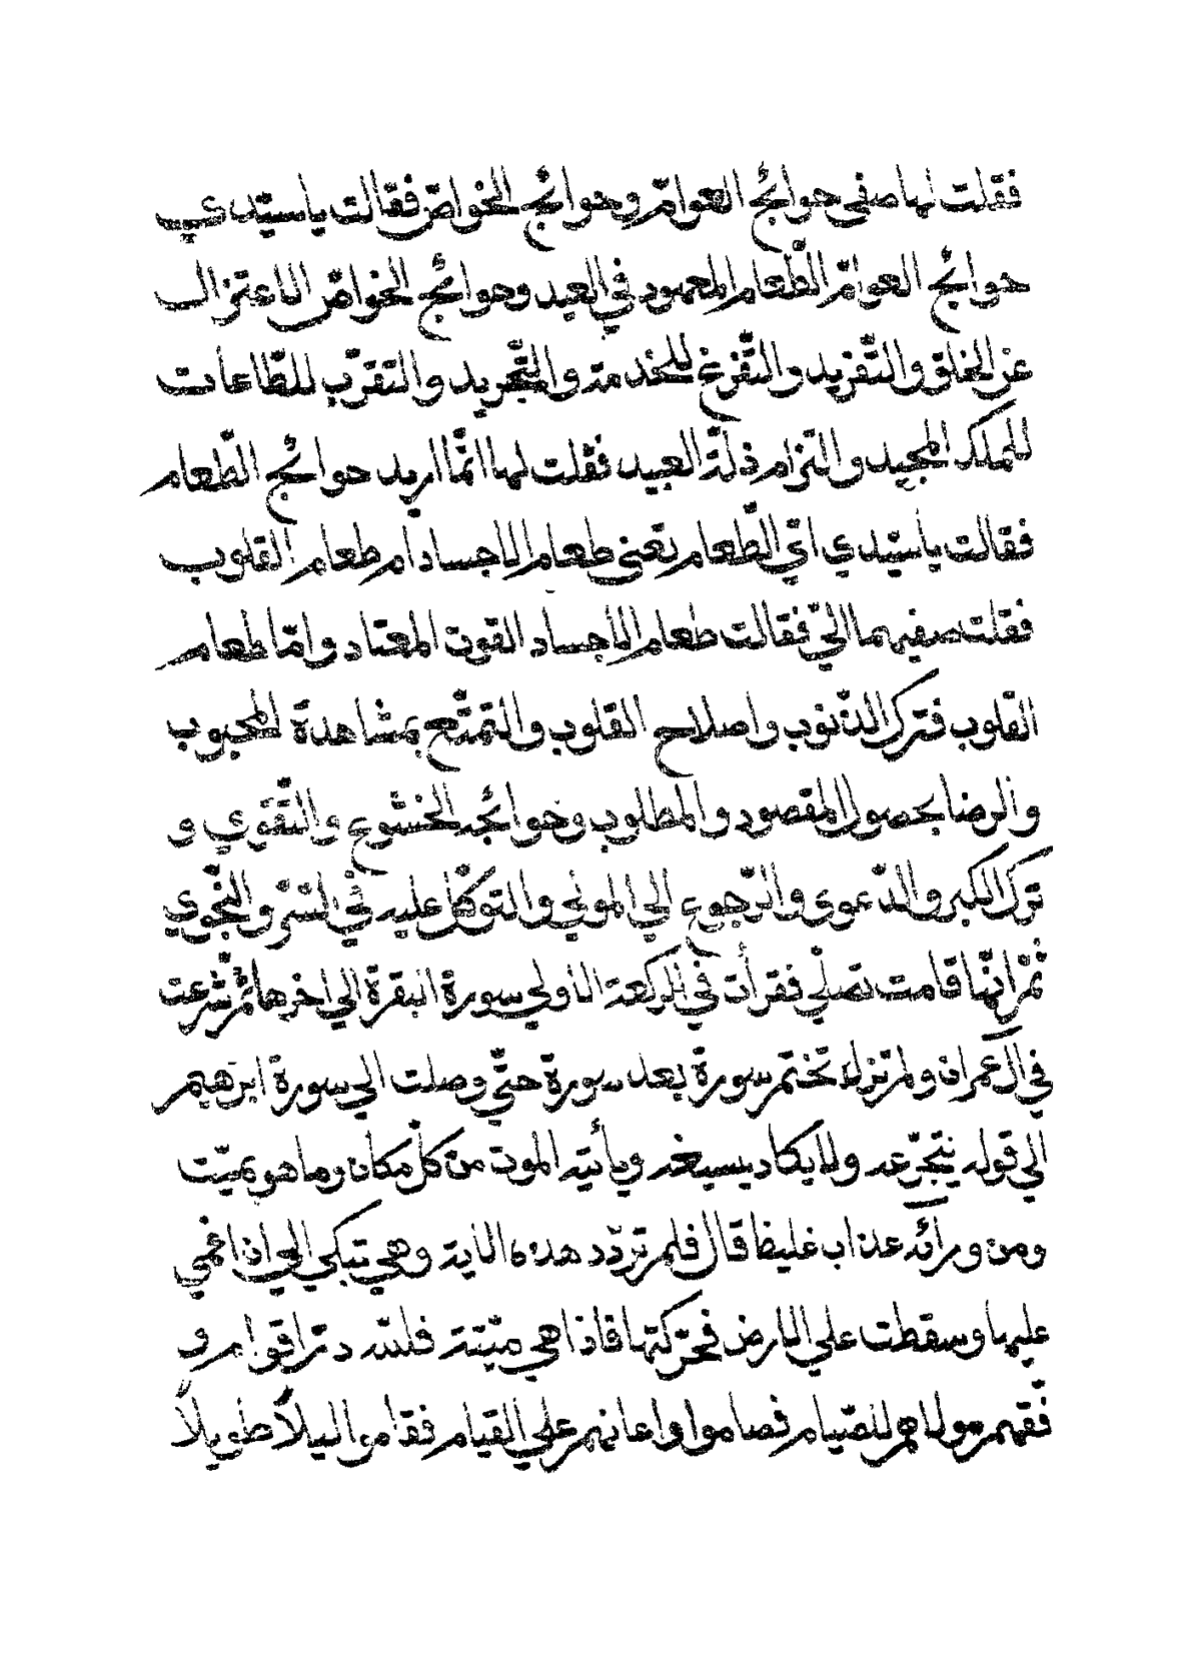 فقلت لها صفى حوائج العوامّ وحوائج الخواصّ فقالت يا سيّدي
حوائج العوامّ الطّعام المعهود في العيد وحوائج الخواصّ الاعتزال
عن الخلق والتّفريد والتّفرّغ للخدمة والتّجريد والتقرّب للطّاعات
للملك المجيد والتزام ذلّة العبيد فقلت لها انّما اريد حوائج الطّعام
فقالت يا سيّدي ايّ الطّعام تعنى طعام الاجساد ام طعام القلوب
فقلت صفيهما اليّ فقالت طعام الاجساد القوت المعتاد وامّا طعام
القلوب فترك الذّنوب واصلاح القلوب والتمتّع بمشاهدة المحبوب
والرضا بحصول المقصود والمطلوب وحوائجه الخشوع والتّقوي و
ترك الكبر والدّعوى والرّجوع الي المولي والتوكّل عليه في السّرّ والنّجوي
ثمّ انّها قامت تصلّي فقرأت في الركعة الاولي سورة البقرة الي اخرها ثمّ شرعت
في آل عمران ولم تزل تختم سورة بعد سورة حتّي وصلت الي سورة ابرهيم
الي قوله يتجرّعه ولا يكاد يسيغه ويأتيه الموت من كلّ مكان وما هو بميّت
ومن ورآئه عذاب غليظ قال فلم تردّد هذه الاية وهي تبكي الي ان اغمي
عليها وسقطت علي الارض فحرّكتها فاذا هي ميّتة فلله درّ اقوام و
فّقهم مولاهم للصّيام فصاموا واعانهم علي القيام فقاموا ليلاً طويلاً